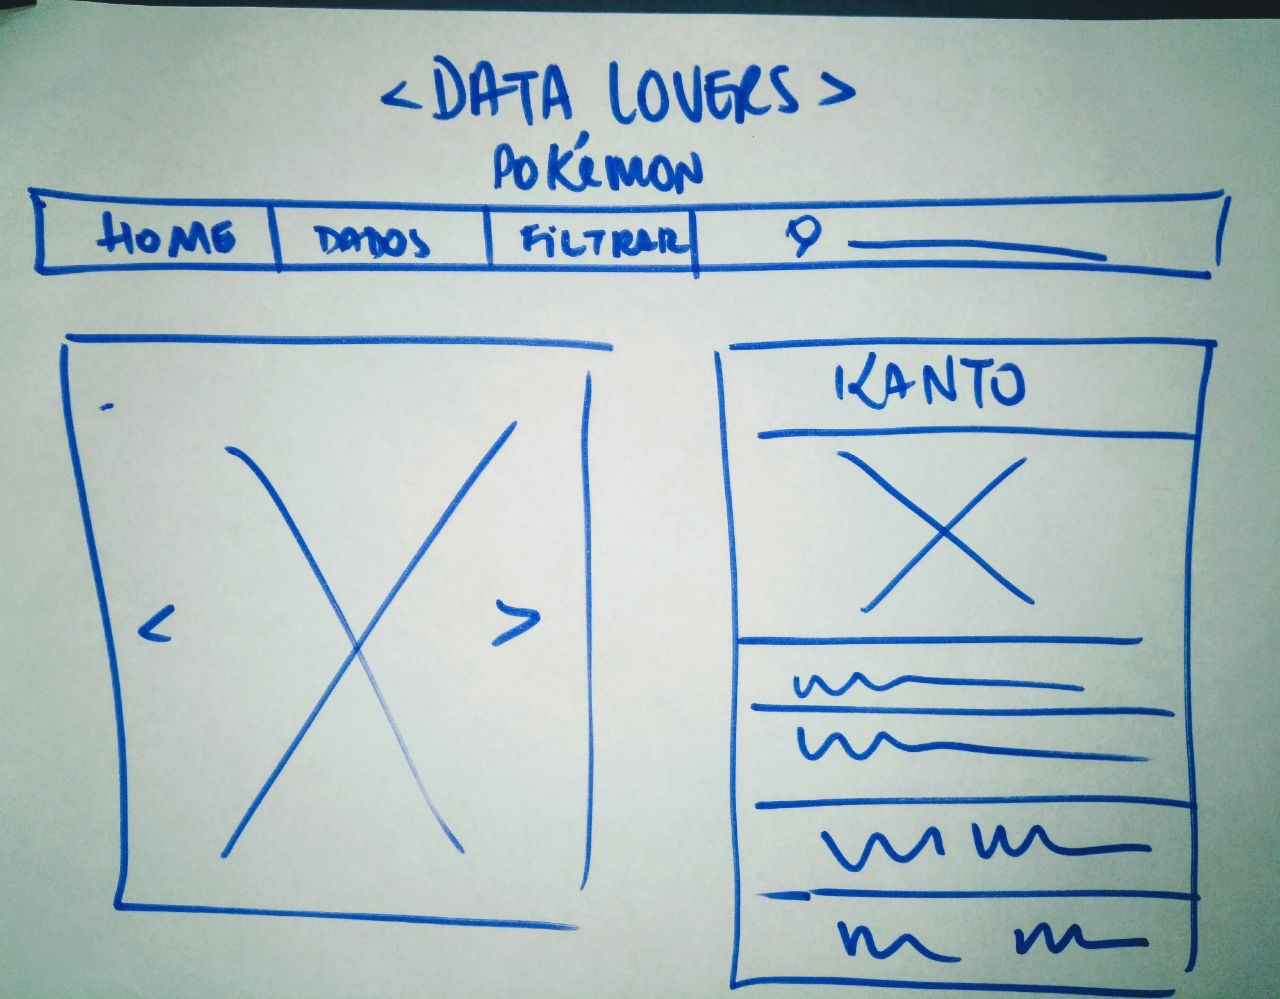 < DATA LOVERS >
POKéMON
HOME DADOS FILTRAR
KANTO
< >